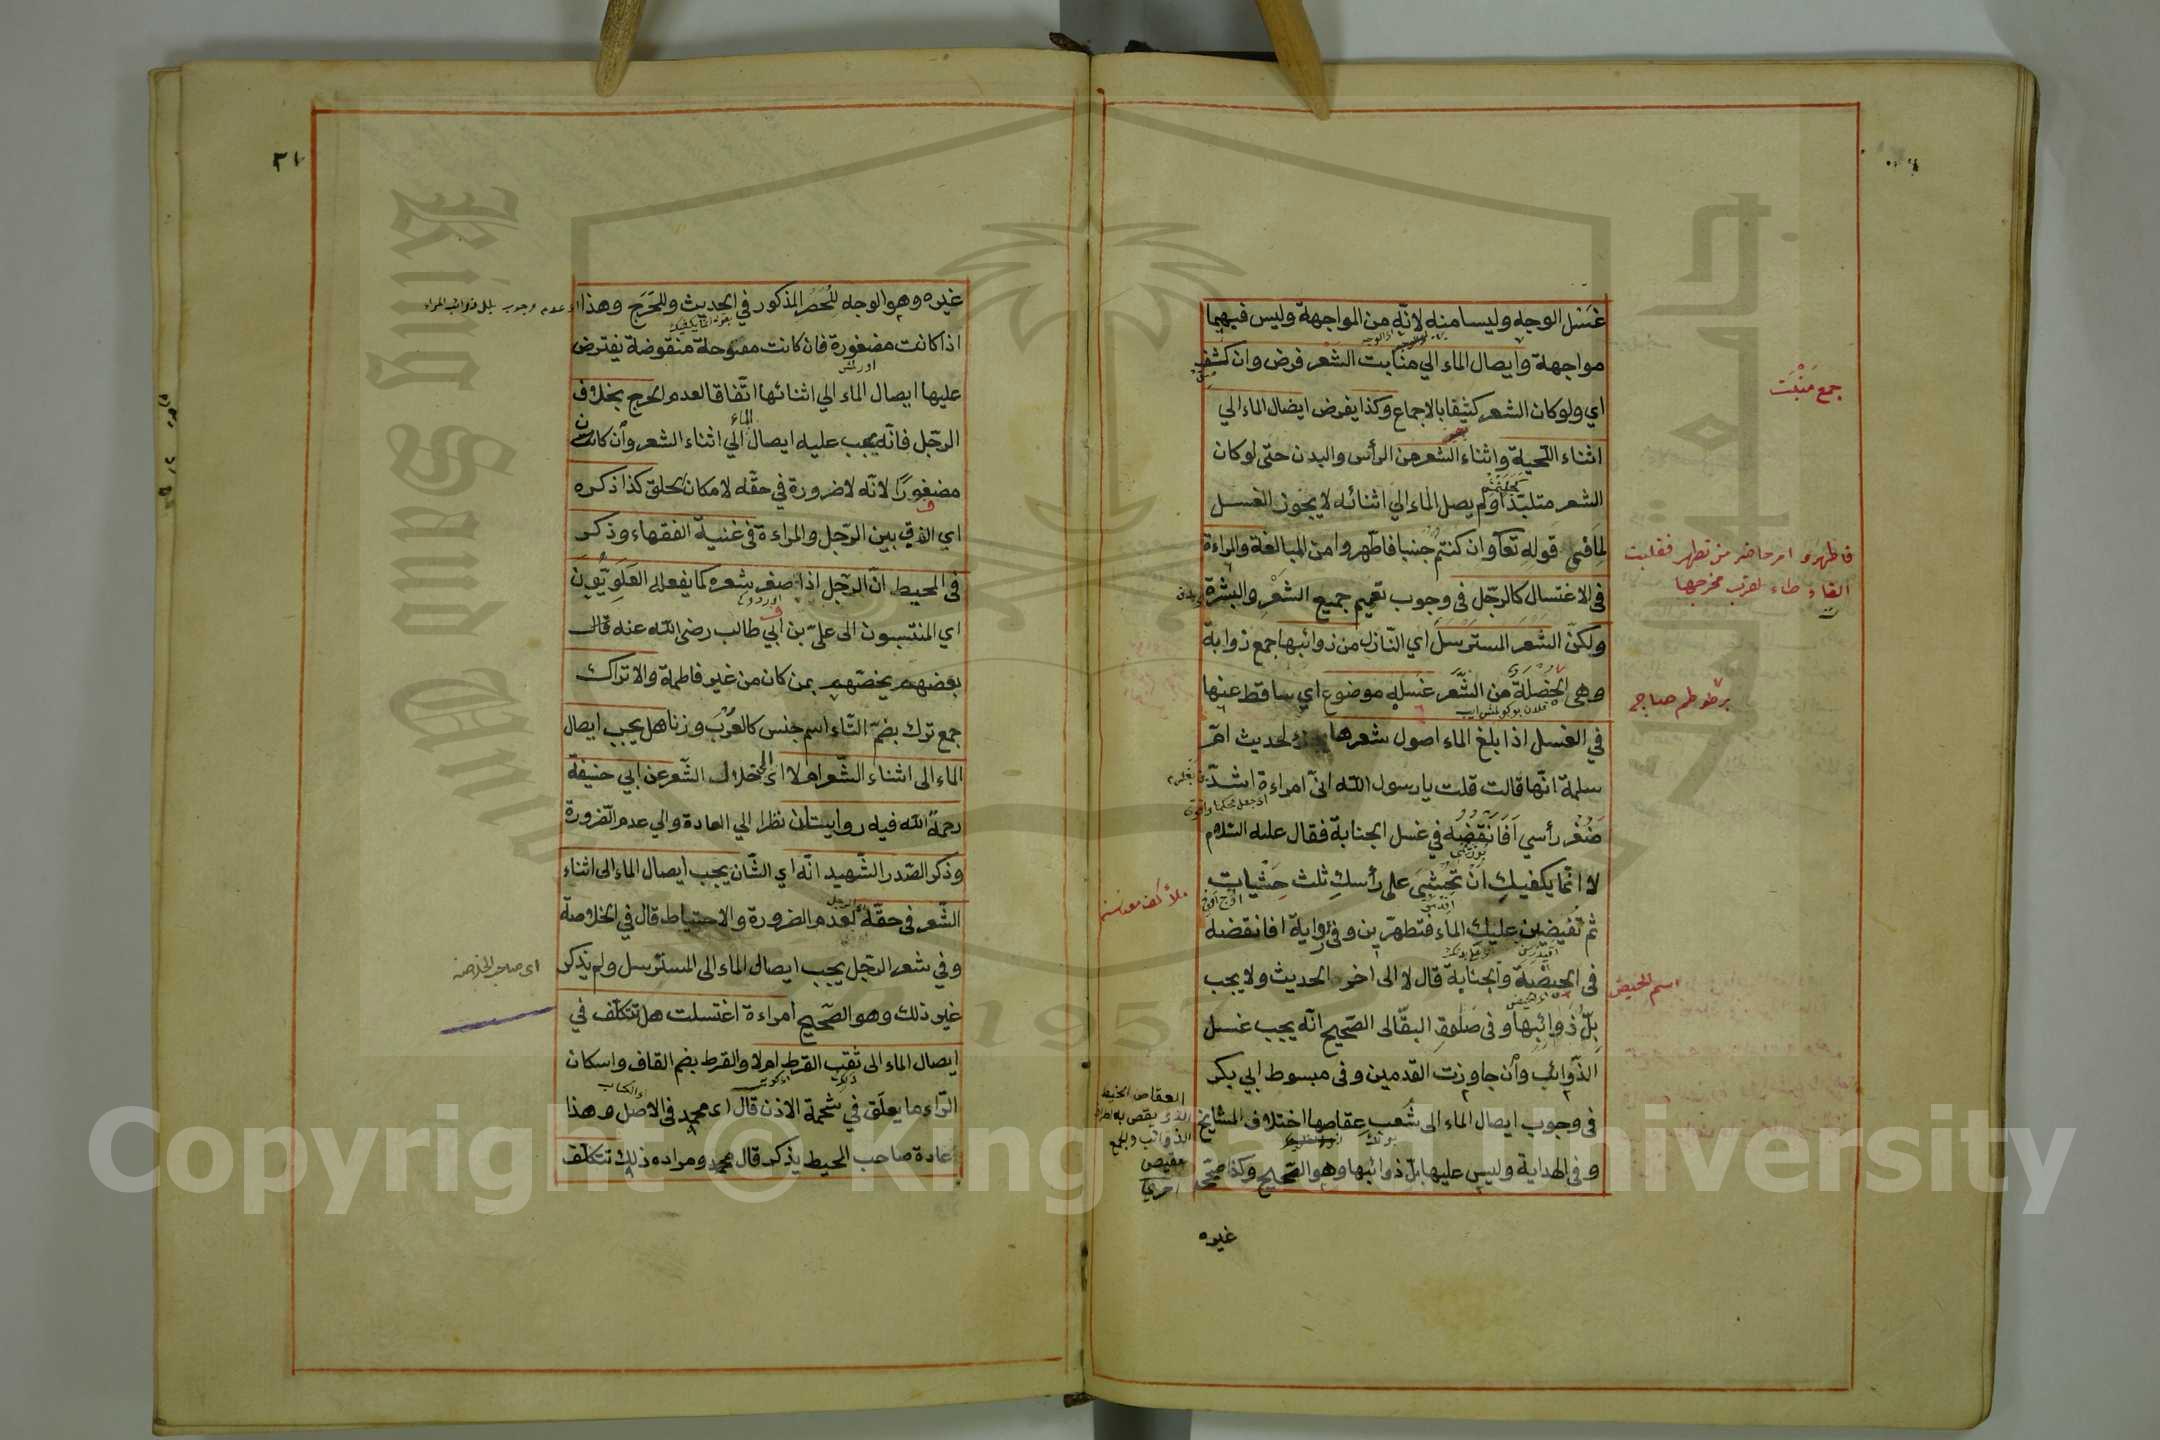 غسل الوجه وليسا منه لانه من المواجهة وليس فيهما
مواجهة وايصال الماء الي منابت الشعر فرض وان كشف
اي ولو كان الشعر كثيفا بالاجماع وكذا يفرض ايصال الماء الي
اثناء اللحية واثناء الشعر من الرأس والبدن حتى لو كان
الشعر متلبّدا ولم يصل الماء الي اثنائه لا يجوز الغسل
لما في قوله تعا وان كنتم جنبا فاطهروا من المبالغة والمراءة
في الاغتسال كالرجل في وجوب تعميم جميع الشعر والبشرة
ولكن الشعر المسترسل اي النازل من ذوائبها جمع ذوابة
وهي الخصلة من الشعر غسله موضوع اي ساقط عنها
في الغسل اذا بلغ الماء اصول شعرها لحديث ام
سلمة انها قالت قلت يا رسول الله اني امراءة اشدّ
ضفر رأسي أفأنقضه في غسل الجنابة فقال عليه السلام
لا انما يكفيك ان تحثي على رأسك ثلث حثيات
ثم تفيضين عليك الماء فتطهرين وفي رواية افانقضه
في الحيضة والجنابة قال لا الى اخر الحديث ولا يجب
بلّ ذوائبها وفي صلوة البقالى الصحيح انه يجب غسل
الذوائب وأن جاوزت القدمين وفي مبسوط ابي بكر
في وجوب ايصال الماء الى شعب عقاصها اختلاف المشايخ
وفي الهداية وليس عليها بلّ ذوائبها وهو الصحيح وكذا صحّح
غيره
جمع مَنْبَت
فاطهروا امر حاضر من تطهر فقلبت
التاء طاء لقرب مخرجها
اسم الحيض
العقاص الخيط
الذي يعقص به اطراف
الذوائب والجمع
عقيص
اخري
٣١
غيره وهو الوجه للحصر المذكور في الحديث وللحرج وهذا
اذا كانت مضفورة فان كانت مفتوحلة منقوضة يفترض
عليها ايصال الماء الي اثنائها اتفاقا لعدم الحرج بخلاف
الرجل فانه يجب عليه ايصال الماء الي اثناء الشعر وأن كانت
مضفورا لانه لا ضرورة في حقه لا مكان الحلق كذا ذكره
اي الفرق بين الرجل والمراءة في غنية الفقهاء وذكر
في المحيط انّ الرجل اذا ضفر شعره كما يفعله العلويّون
اي المنتسبون الى عليّ بن ابي طالب رضى الله عنه قال
بعضهم يخصّهم بمن كان من غير فاطمة والاتراك
جمع ترك بضمّ التاء اسم جنس كالعرب وزنا هل يجب ايصال
الماء الى اثناء الشعر ام لا اي الى خلال الشعر عن ابي حنيفة
رحمة الله فيه روايتان نظرا الي العادة والي عدم الضرورة
وذكر الصدر الشهيد انه اي الشان يجب ايصال الماء الى اثناء
الشعر في حقه لعدم الضرورة والاحتياط قال في الخلاصة
وفي شعر الرجل يجب ايصال الماء الى المسترسل ولم يذكر
غير ذلك وهو الصحيح امراءة اغتسلت هل تتكلف في
ايصال الماء الى ثقب القرط ام لا والقرط بضم القاف واسكان
الراء ما يعلق في شحمة الاذن قال اي محمد في الاصل وهذا
عادة صاحب المحيط يذكر قال محمد ومراده ذلك تتكلف
اي صاحب الخلاصة
King Saud University
1957
Copyright © King Saud University